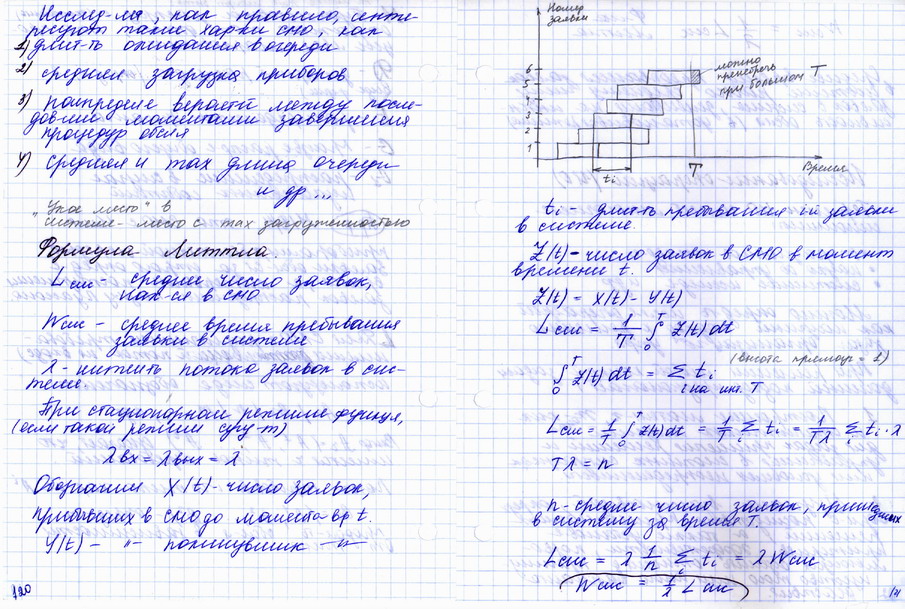 Исслед-ля, как правило, инте-
ресуют такие хар-ки СМО, как
1) длит-ть ожидания в очереди
2) средняя загрузка приборов
3) распределе вероятй между после-
довпми моментами завершения
процедур обсля
4) средняя и max длина очереди
и др ...
"Узкое место" в
системе - место с max загруженностью
Формула Литтла.
Lсис - среднее число заявок,
нах-ся в СМО
Wсис - среднее время пребывания
заявки в системе
λ - интенть потока заявок в сис-
теме.
При стационарном режиме функця,
(если такой режим сущ-т)
λвх = λвых = λ
Обозначим X(t) - число заявок,
прибывших в СМО до момента вр t.
Y(t) - -"- покинувших -"-
120
Номер
заявки
6
5
4
3
2
1
можно
пренебречь
при большом T
ti
T
Время
ti - длит-ть пребывания i-й заявки
в системе.
Z(t) - число заявок в СМО в момент
времени t.
Z(t) = X(t) - Y(t)
Lсис = 1/T ∫₀ᵀ Z(t) dt
(высота прямоуг = 1)
∫₀ᵀ Z(t) dt = Σ ti
i на инт. T
Lсис = 1/T ∫₀ᵀ Z(t) dt = 1/T Σi ti = 1/(Tλ) Σi ti · λ
Tλ = n
n - среднее число заявок, пришедших
в систему за время T.
Lсис = λ 1/n Σi ti = λ Wсис
Wсис = 1/λ Lсис
121